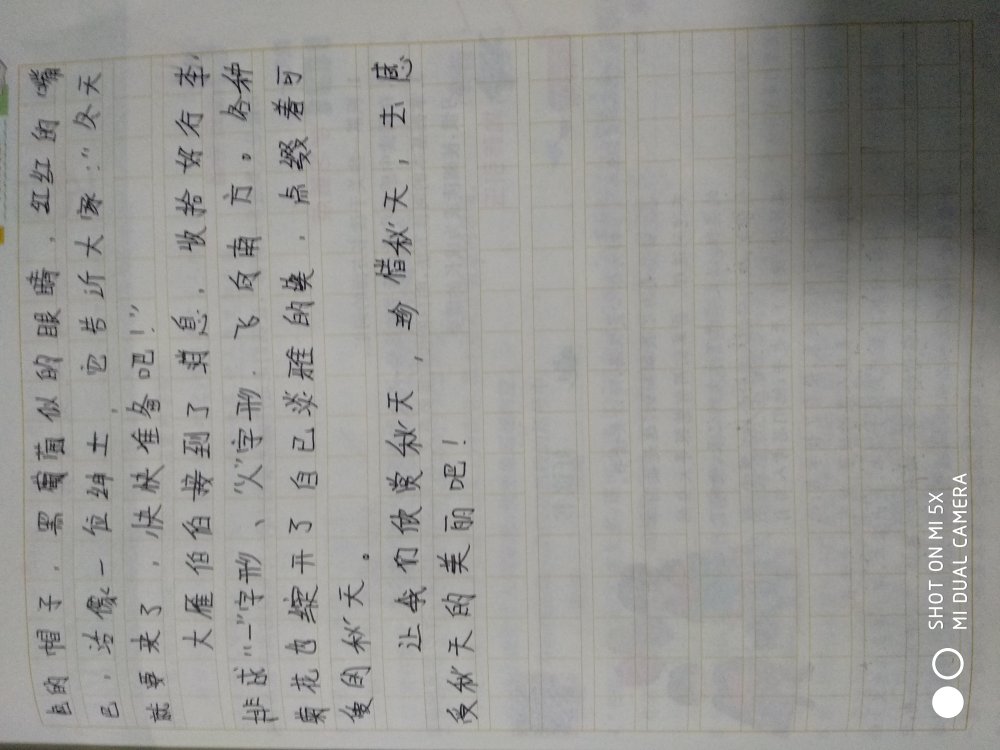 色的帽子，黑葡萄似的眼睛，红红的嘴
巴，活像一位绅士，它告诉大家：“冬天
就要来了，快快准备吧！”
大雁伯伯接到了消息，收拾好行李，
排成“一”字形、“人”字形，飞向南方。各种
菊花也绽开了自己淡雅的美，点缀着可
爱的秋天。
让我们欣赏秋天，珍惜秋天，去感
受秋天的美丽吧！
SHOT ON MI 5X
MI DUAL CAMERA